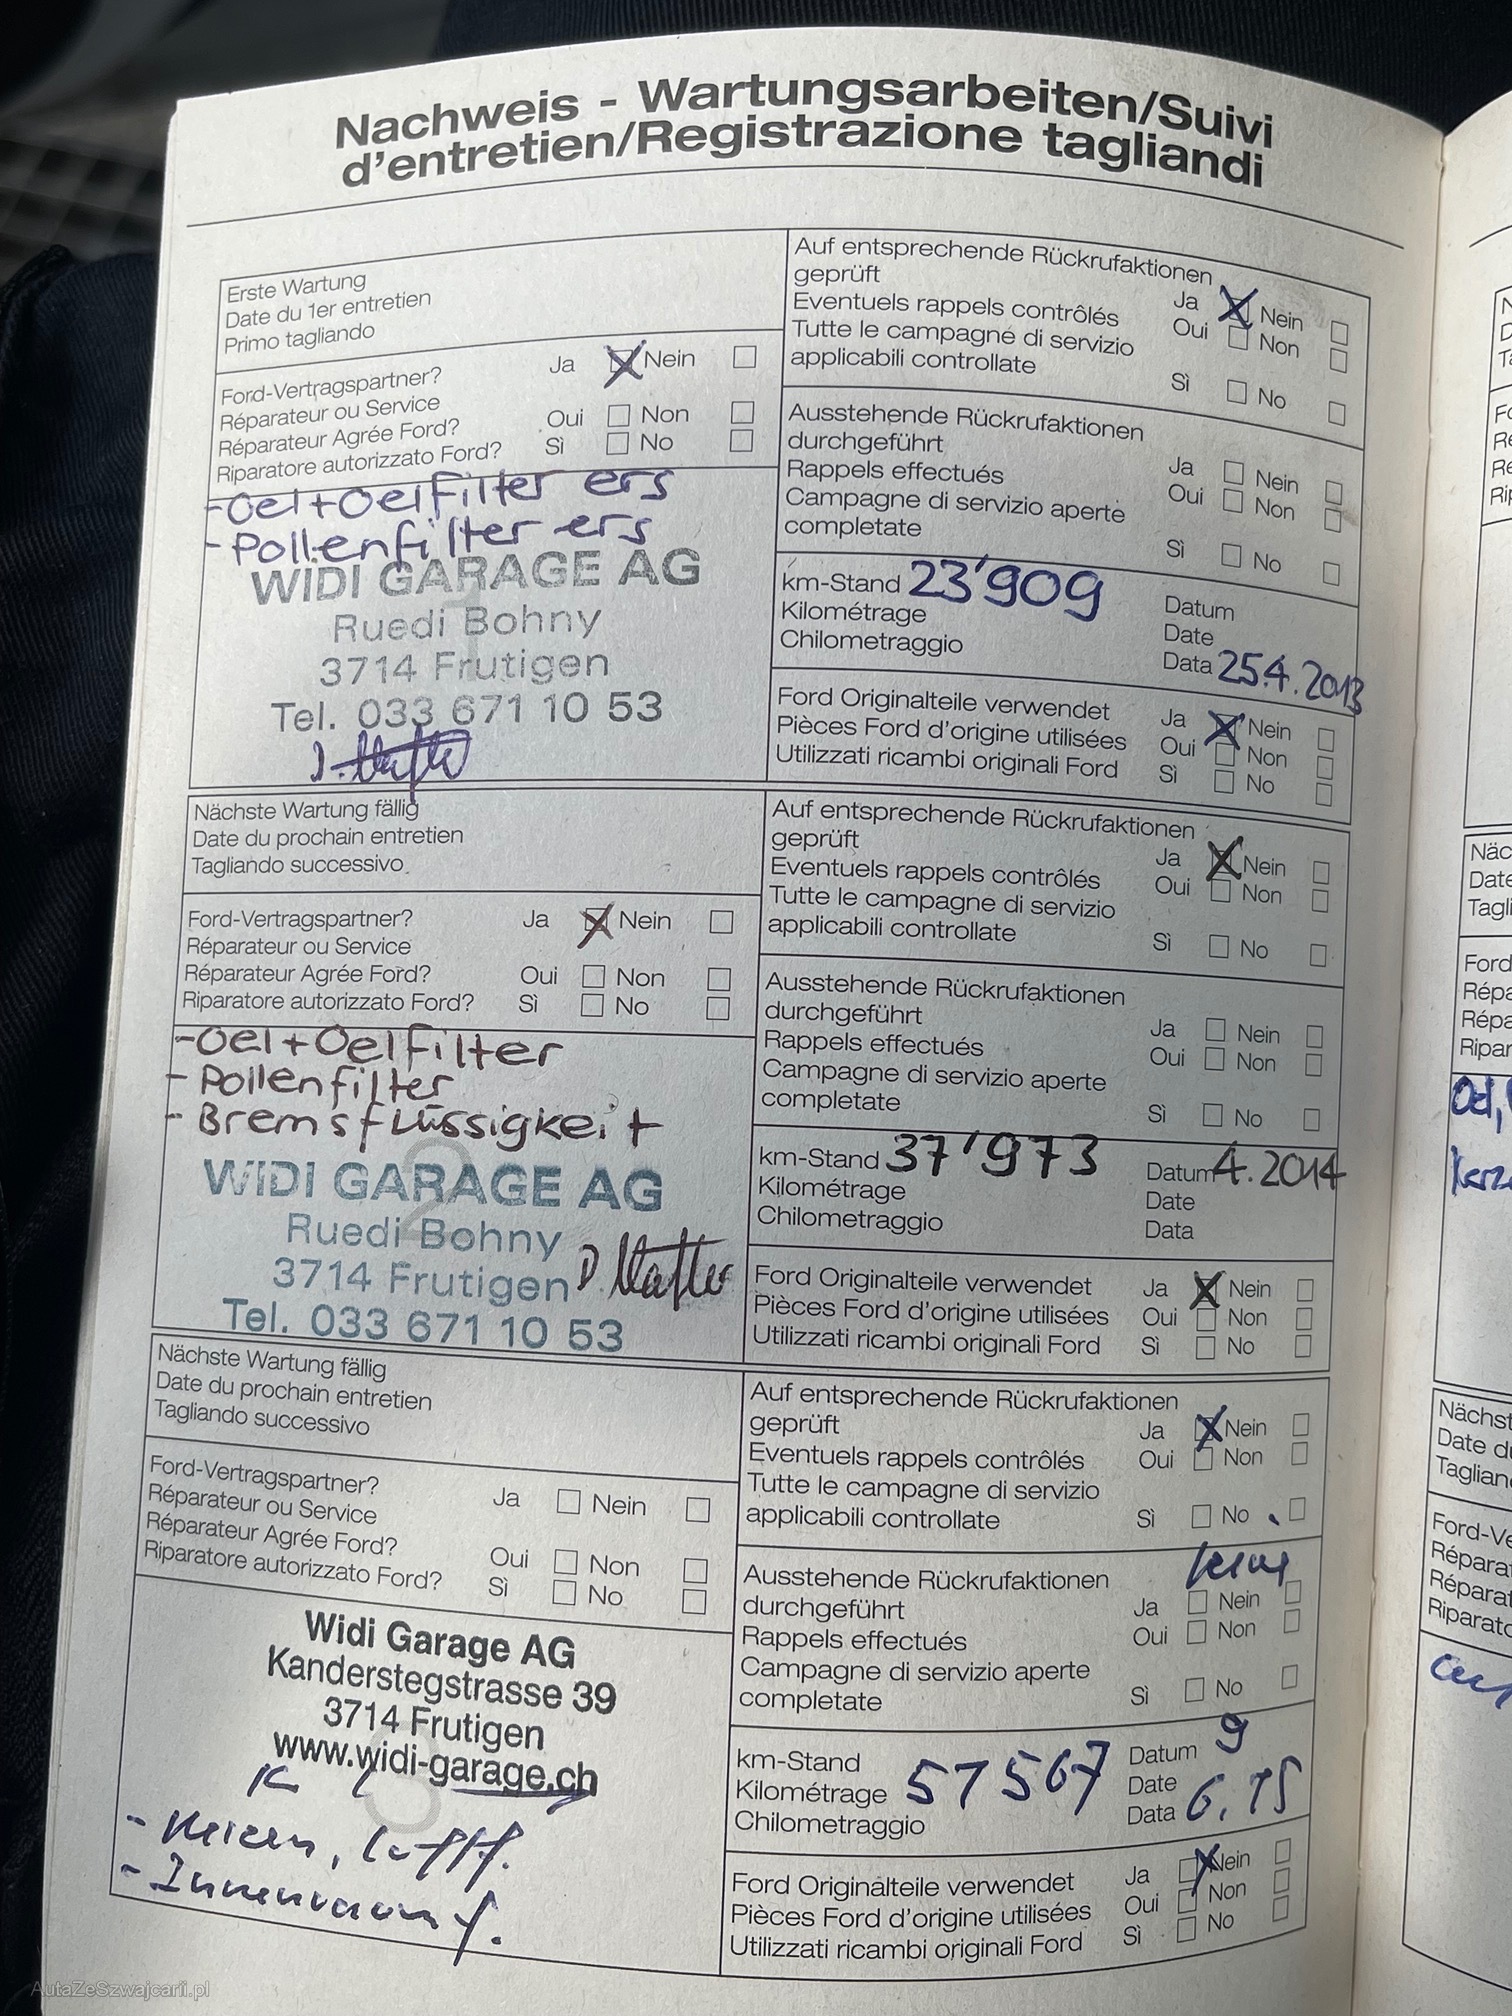 Nachweis - Wartungsarbeiten/Suivi
d'entretien/Registrazione tagliandi
Erste Wartung
Date du 1er entretien
Primo tagliando
Ford-Vertragspartner?
Réparateur ou Service
Réparateur Agrée Ford?
Riparatore autorizzato Ford?
Ja Nein
Oui Non
Sì No
-Oel+Oelfilter ers
-Pollenfilter ers
WIDI GARAGE AG
1
Ruedi Bohny
3714 Frutigen
Tel. 033 671 10 53
Auf entsprechende Rückrufaktionen
geprüft
Eventuels rappels contrôlés
Tutte le campagne di servizio
applicabili controllate
Ja Nein
Oui Non
Sì No
Ausstehende Rückrufaktionen
durchgeführt
Rappels effectués
Campagne di servizio aperte
completate
Ja Nein
Oui Non
Sì No
km-Stand 23'909
Kilométrage
Chilometraggio
Datum
Date
Data 25.4.2013
Ford Originalteile verwendet
Pièces Ford d'origine utilisées
Utilizzati ricambi originali Ford
Ja Nein
Oui Non
Sì No
Nächste Wartung fällig
Date du prochain entretien
Tagliando successivo
Ford-Vertragspartner?
Réparateur ou Service
Réparateur Agrée Ford?
Riparatore autorizzato Ford?
Ja Nein
Oui Non
Sì No
-Oel+Oelfilter
- Pollenfilter
- Bremsflüssigkeit
2
WIDI GARAGE AG
Ruedi Bohny
3714 Frutigen
Tel. 033 671 10 53
Auf entsprechende Rückrufaktionen
geprüft
Eventuels rappels contrôlés
Tutte le campagne di servizio
applicabili controllate
Ja Nein
Oui Non
Sì No
Ausstehende Rückrufaktionen
durchgeführt
Rappels effectués
Campagne di servizio aperte
completate
Ja Nein
Oui Non
Sì No
km-Stand 37'973
Kilométrage
Chilometraggio
Datum 4.2014
Date
Data
Ford Originalteile verwendet
Pièces Ford d'origine utilisées
Utilizzati ricambi originali Ford
Ja Nein
Oui Non
Sì No
Nächste Wartung fällig
Date du prochain entretien
Tagliando successivo
Ford-Vertragspartner?
Réparateur ou Service
Réparateur Agrée Ford?
Riparatore autorizzato Ford?
Ja Nein
Oui Non
Sì No
Widi Garage AG
Kanderstegstrasse 39
3714 Frutigen
www.widi-garage.ch
3
- Innenraumf.
Auf entsprechende Rückrufaktionen
geprüft
Eventuels rappels contrôlés
Tutte le campagne di servizio
applicabili controllate
Ja Nein
Oui Non
Sì No
Ausstehende Rückrufaktionen
durchgeführt
Rappels effectués
Campagne di servizio aperte
completate
keine
Ja Nein
Oui Non
Sì No
km-Stand
Kilométrage 57567
Chilometraggio
Datum 9
Date
Data 6.15
Ford Originalteile verwendet
Pièces Ford d'origine utilisées
Utilizzati ricambi originali Ford
Ja Nein
Oui Non
Sì No
AutaZeSzwajcarii.pl